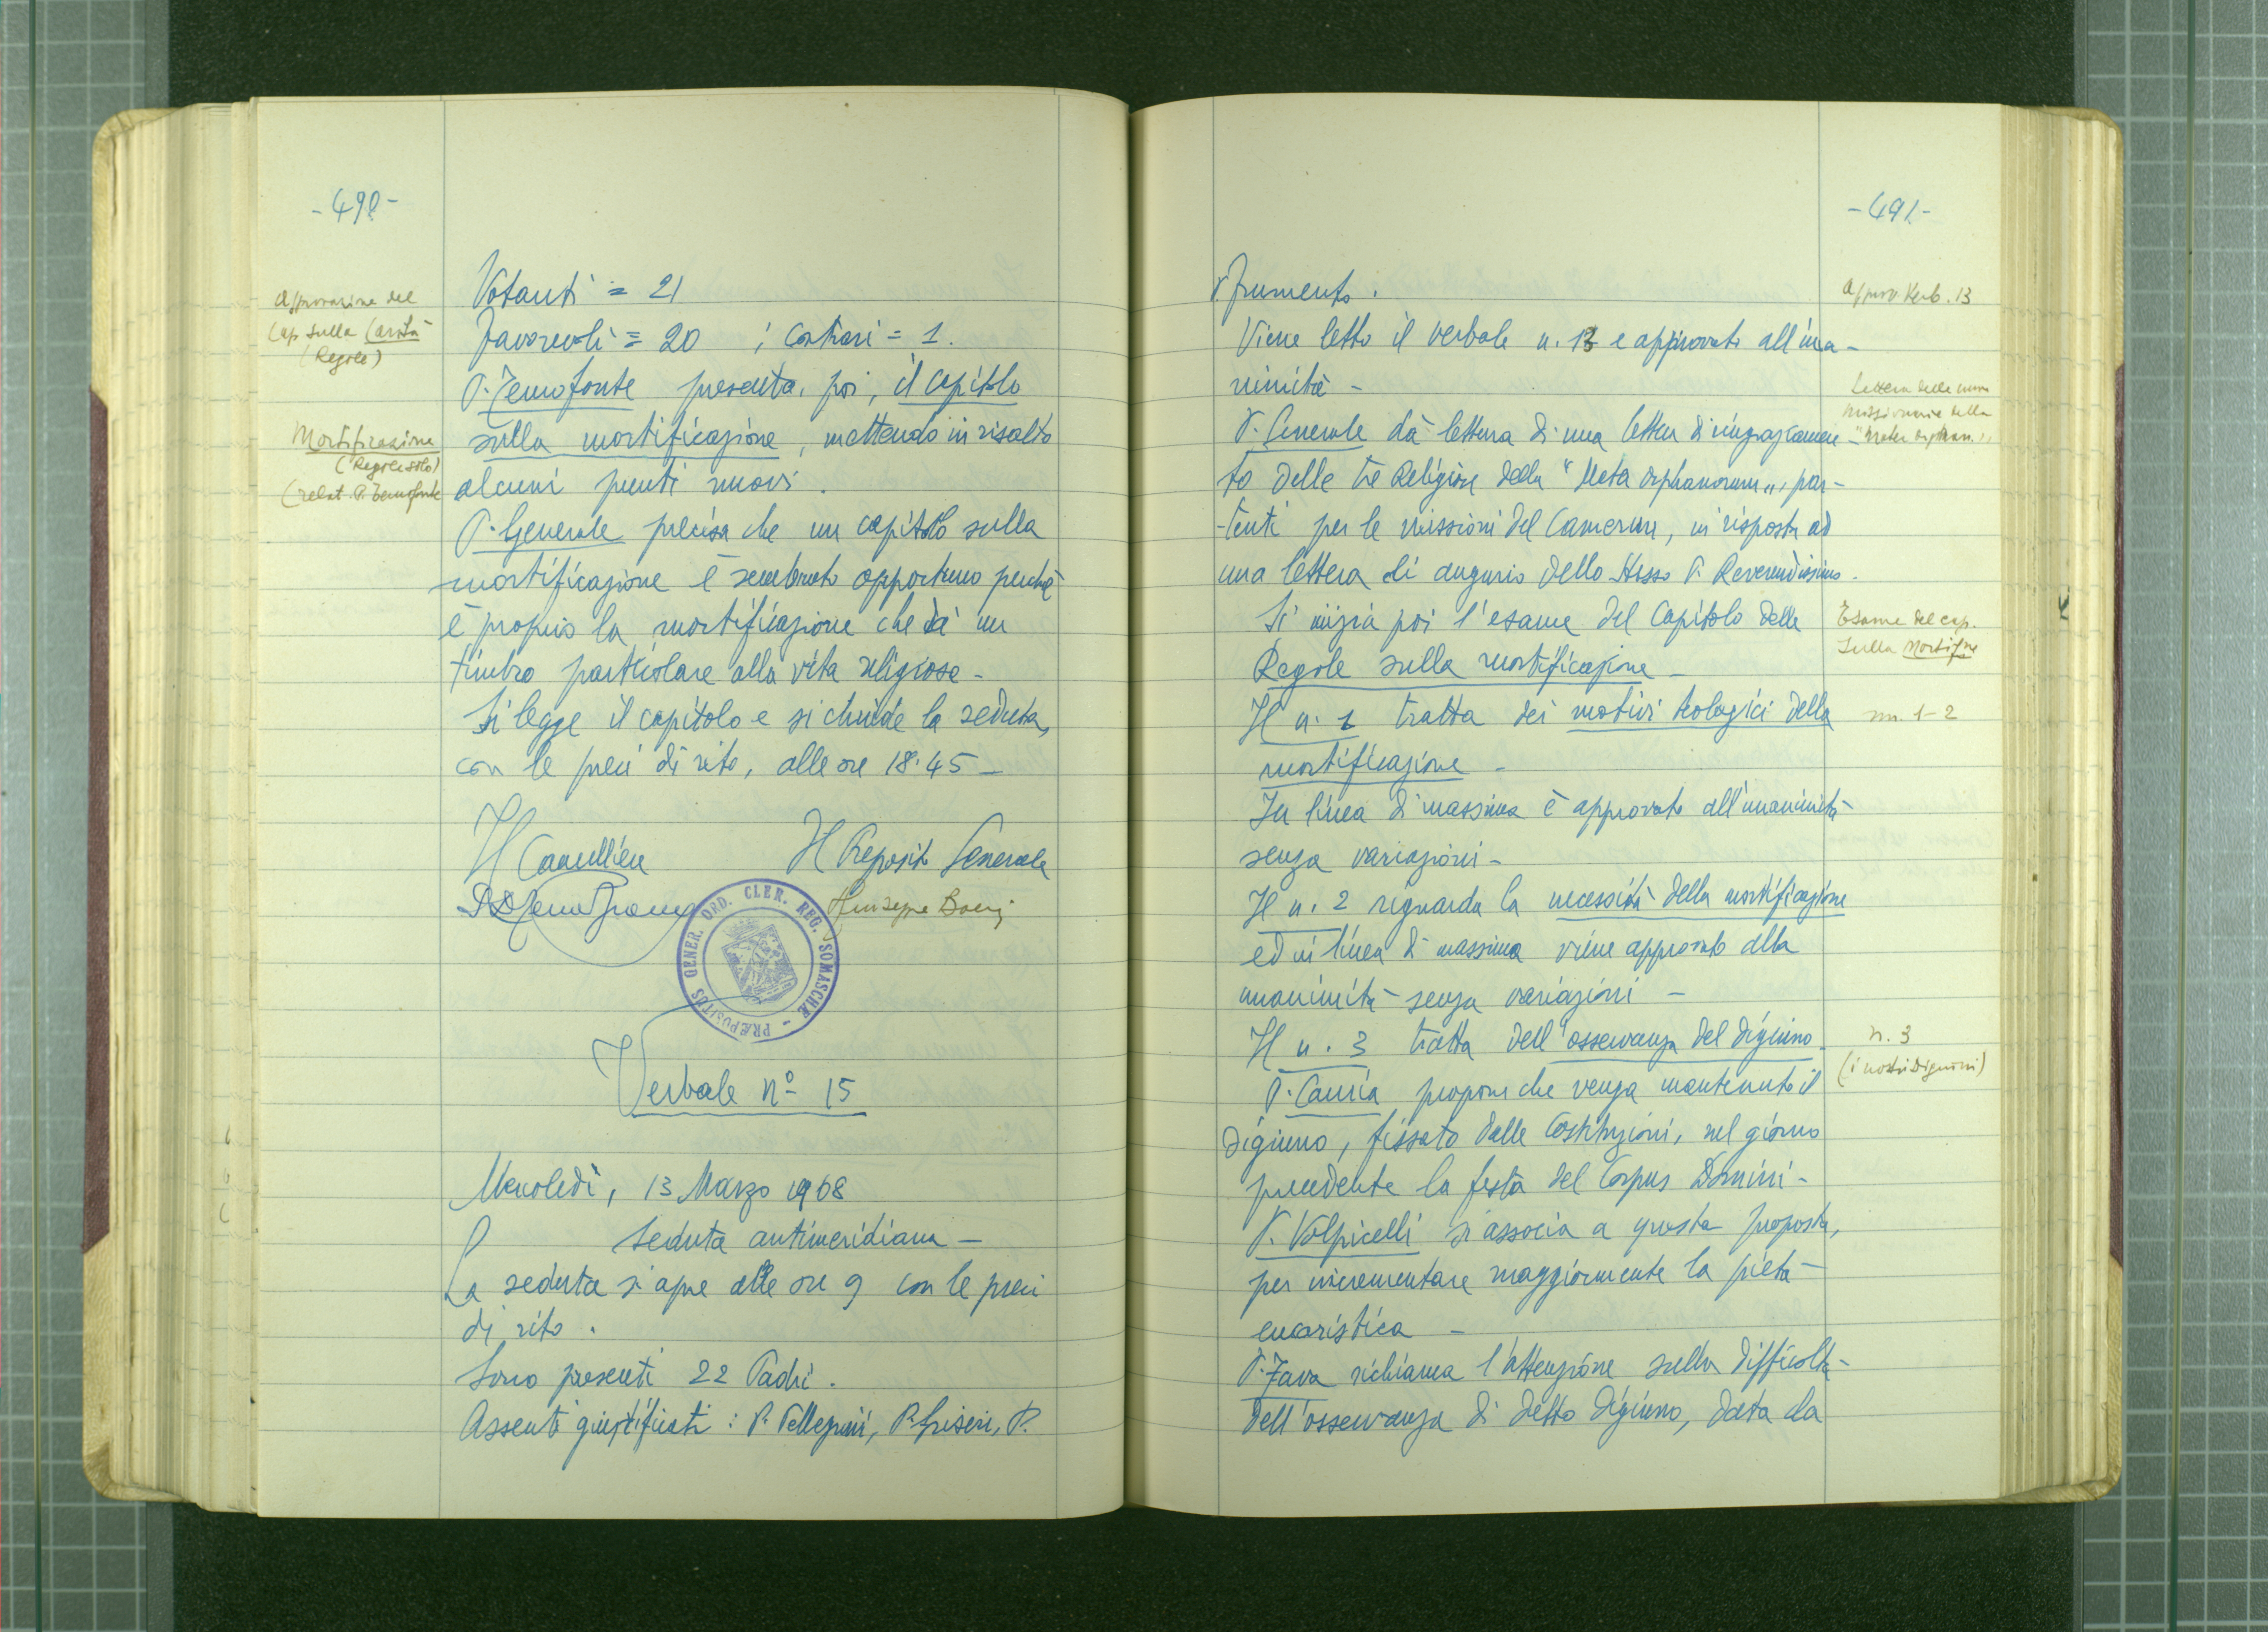 -490-
Approvazione del
Cap. sulla Carità
(Regole)
Mortificazione
(Regole)
(relat. P. Temofonte
Votanti = 21
Favorevoli = 20 ; Contrari = 1.
P. Temofonte presenta, poi, il capitolo
sulla mortificazione, mettendo in risalto
alcuni punti nuovi.
P. Generale precisa che un capitolo sulla
mortificazione è sembrato opportuno perchè
è proprio la mortificazione che dà un
timbro particolare alla vita religiosa -
Si legge il capitolo e si chiude la seduta,
con le preci di rito, alle ore 18.45 -
Il Cancelliere Il Preposito Generale
Giuseppe Boeri
PRÆPOSITUS GENER. ORD. CLER. REG. SOMASCHÆ -
Verbale nº 15
Mercoledì, 13 Marzo 1968
Seduta antimeridiana -
La seduta si apre alle ore 9 con le preci
di rito.
Sono presenti 22 Padri.
Assenti giustificati: P. Pellegrini, P. Griseri, P.
-491-
Frumento.
Viene letto il verbale n. 13 e approvato all'una-
nimità -
P. Generale dà lettura di una lettera di ringraziamen-
to delle tre Religiose della "Mater orphanorum", par-
-tenti per le missioni del Camerun, in risposta ad
una lettera di augurio dello stesso P. Reverendissimo.
Si inizia poi l'esame del Capitolo delle
Regole sulla mortificazione -
Il n. 1 tratta dei motivi teologici della
mortificazione -
In linea di massima è approvato all'unanimità
senza variazioni -
Il n. 2 riguarda la necessità della mortificazione
ed in linea di massima viene approvato alla
unanimità senza variazioni -
Il n. 3 tratta dell'osservanza del digiuno.
P. Cauria propone che venga mantenuto il
digiuno, fissato dalle Costituzioni, nel giorno
precedente la festa del Corpus Domini -
P. Volpicelli si associa a questa proposta,
per incrementare maggiormente la pietà
eucaristica -
P. Fava richiama l'attenzione sulla difficoltà
dell'osservanza di detto digiuno, data da
Approv. Verb. 13
Lettera delle
missionarie della
"Mater orphan."
Esame del cap.
sulla Mortif.ne
nn. 1-2
n. 3
(i nostri digiuni)